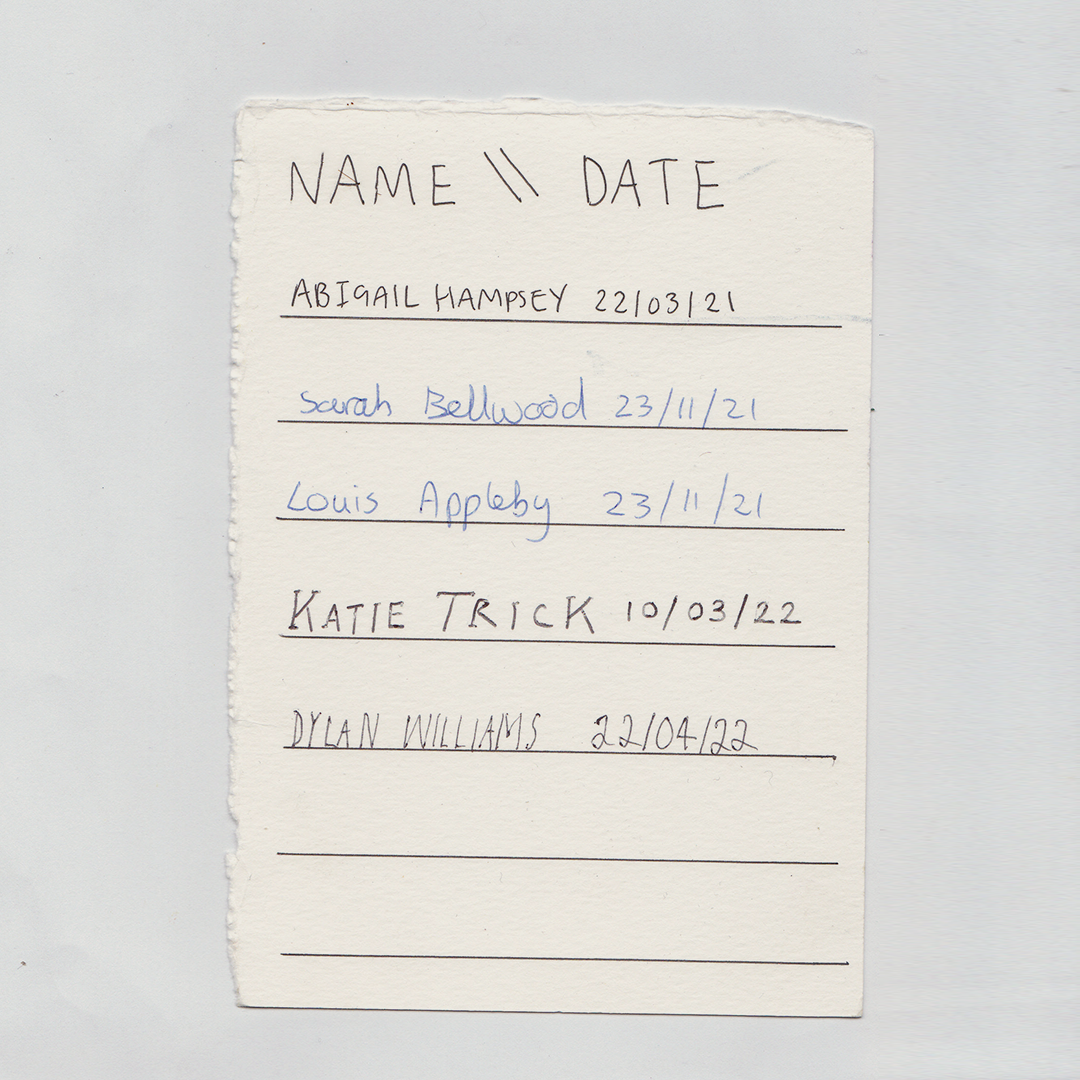 NAME \\ DATE
ABIGAIL HAMPSEY 22/03/21
Sarah Bellwood 23/11/21
Louis Appleby 23/11/21
KATIE TRICK 10/03/22
DYLAN WILLIAMS 22/04/22